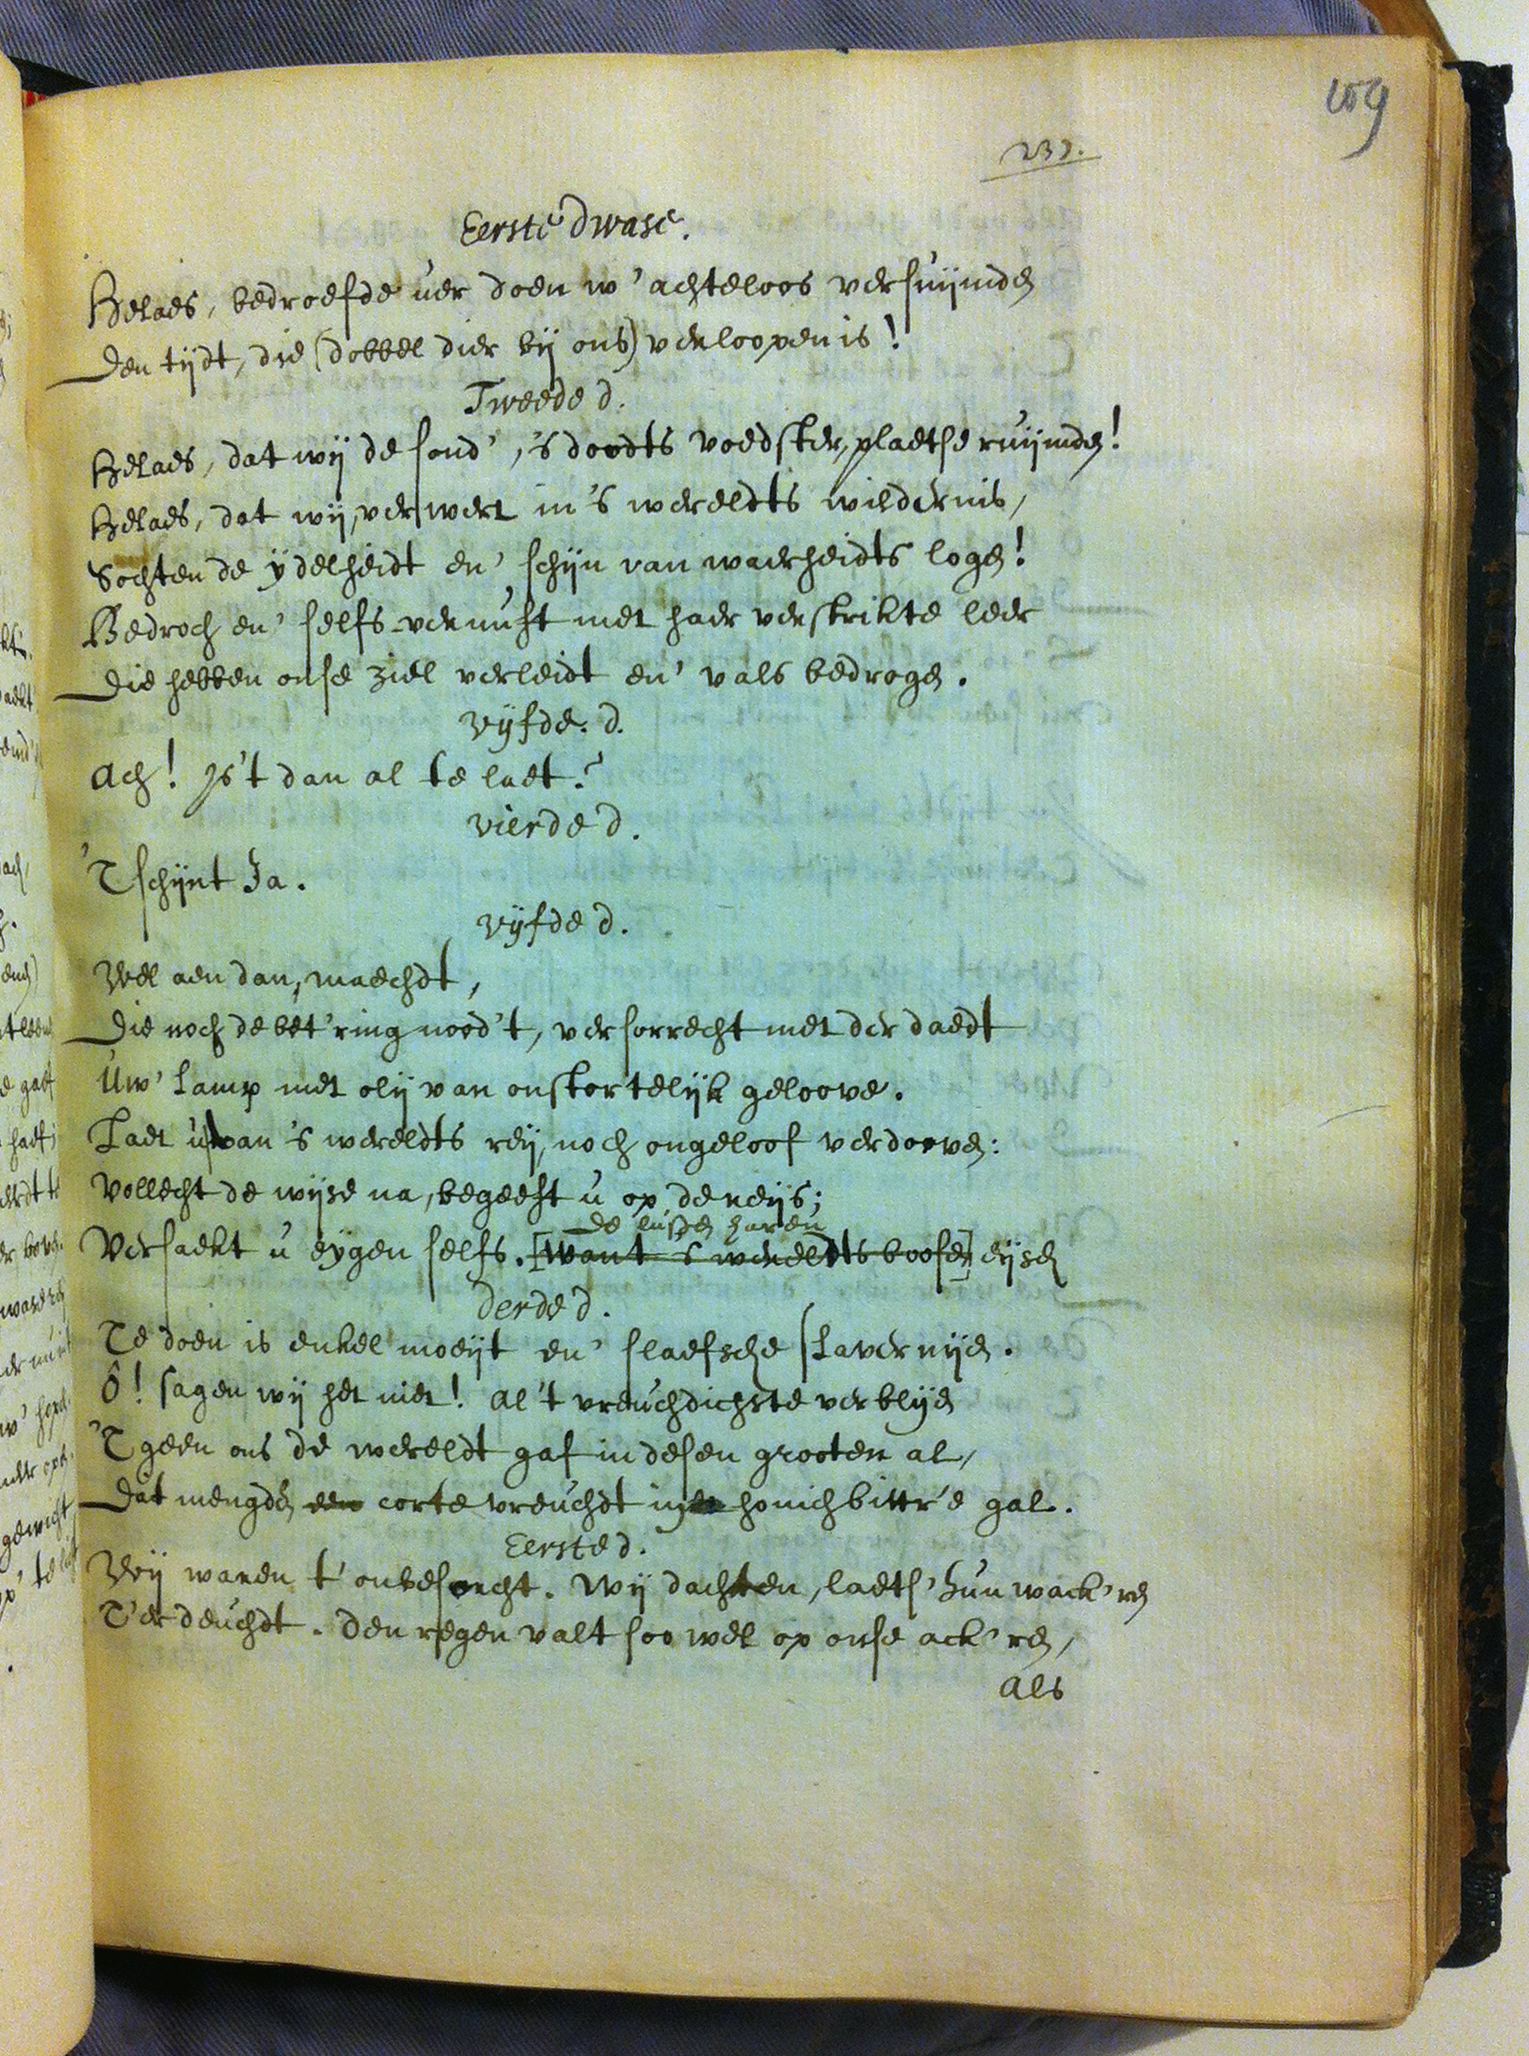 109
232.
Eerste dwase.
Helaes, bedroefde uer doen w' achteloos versuijmden
Den tijdt, die (dobbel dier bij ons) verloopen is!
Tweede d.
Helaes, dat wij de sond', 's doodts voedster, plaetse ruijmden!
Helaes, dat wij, verwert in 's wereldts wildernis,
Sochten de ydelheidt en' schijn van waerheidts logen!
Bedroch en' selfs-vernuft met haer verstrikte leer
Die hebben onse ziel verleidt en' vals bedrogen.
Vijfde. d.
Ach! Js't dan al te laet?
Vierde d.
'T schijnt Ja.
Vijfde d.
Wel aen dan, maechdt,
Die noch de bet'ring nood't, versorrecht met der daedt
Uw' Lamp met olij van onstortelijk geloove.
Laet u van 's wereldts reij, noch ongeloof verdooven:
Vollecht de wijse na, begeeft u op de reijs;
de lusten haren
Versaekt u eygen selfs. [want 's wereldts boose] eijsen
Derde d.
Te doen is enkel moeijt en' slaefsche slavernijen.
Ô! sagen wij het niet! al 't vreuchdichste verblijen
'T geen ons de wereldt gaf in desen grooten al,
Dat mengden een corte vreuchdt in honich bittr'e gal.
Eerste d.
Wij waren t' onbesorcht. Wij dachten, laets' hun wack'ren
T'er deuchdt. Den regen valt soo wel op onse ack'ren,
Als